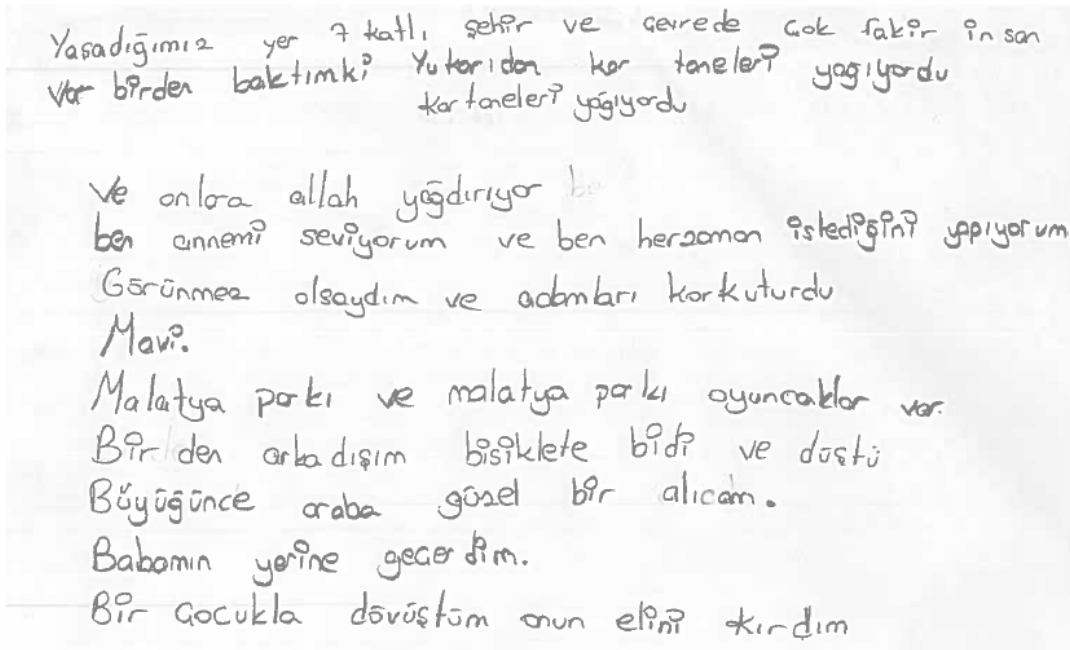 Yaşadığımız yer 7 katlı şehir ve çevrede çok fakir insan
var birden baktımki Yukarıdan kar taneleri yağıyordu
kar taneleri yağıyordu
Ve onlara allah yağdırıyor
ben annemi seviyorum ve ben herzaman istediğini yapıyorum
Görünmez olsaydım ve adamları korkuturdu
Mavi.
Malatya parkı ve malatya parkı oyuncaklar var.
Birden arkadışım bisiklete bidi ve düştü
Büyüğünce araba güzel bir alıcam.
Babamın yerine geçerdim.
Bir Çocukla dövüştüm onun elini kırdım